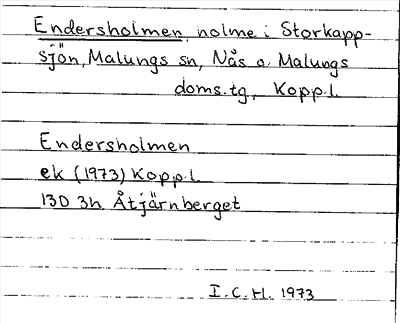 Endersholmen, holme i Storkapp-
sjön, Malungs sn, Nås o. Malungs
doms.tg, Kopp.l.
Endersholmen
ek (1973) Kopp.l.
13D 3h Åtjärnberget
I.C.H. 1973